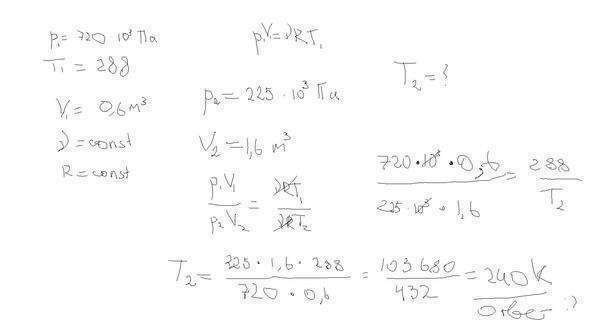 p₁ = 720 · 10³ Па
T₁ = 288
V₁ = 0,6 м³
ν = const
R = const
p₁V₁ = νRT₁
p₂ = 225 · 10³ Па
V₂ = 1,6 м³
T₂ = ?
p₁V₁ / p₂V₂ = νRT₁ / νRT₂
720 · 10³ · 0,6 / 225 · 10³ · 1,6 = 288 / T₂
T₂ = 225 · 1,6 · 288 / 720 · 0,6 = 103680 / 432 = 240 K
Ответ ?